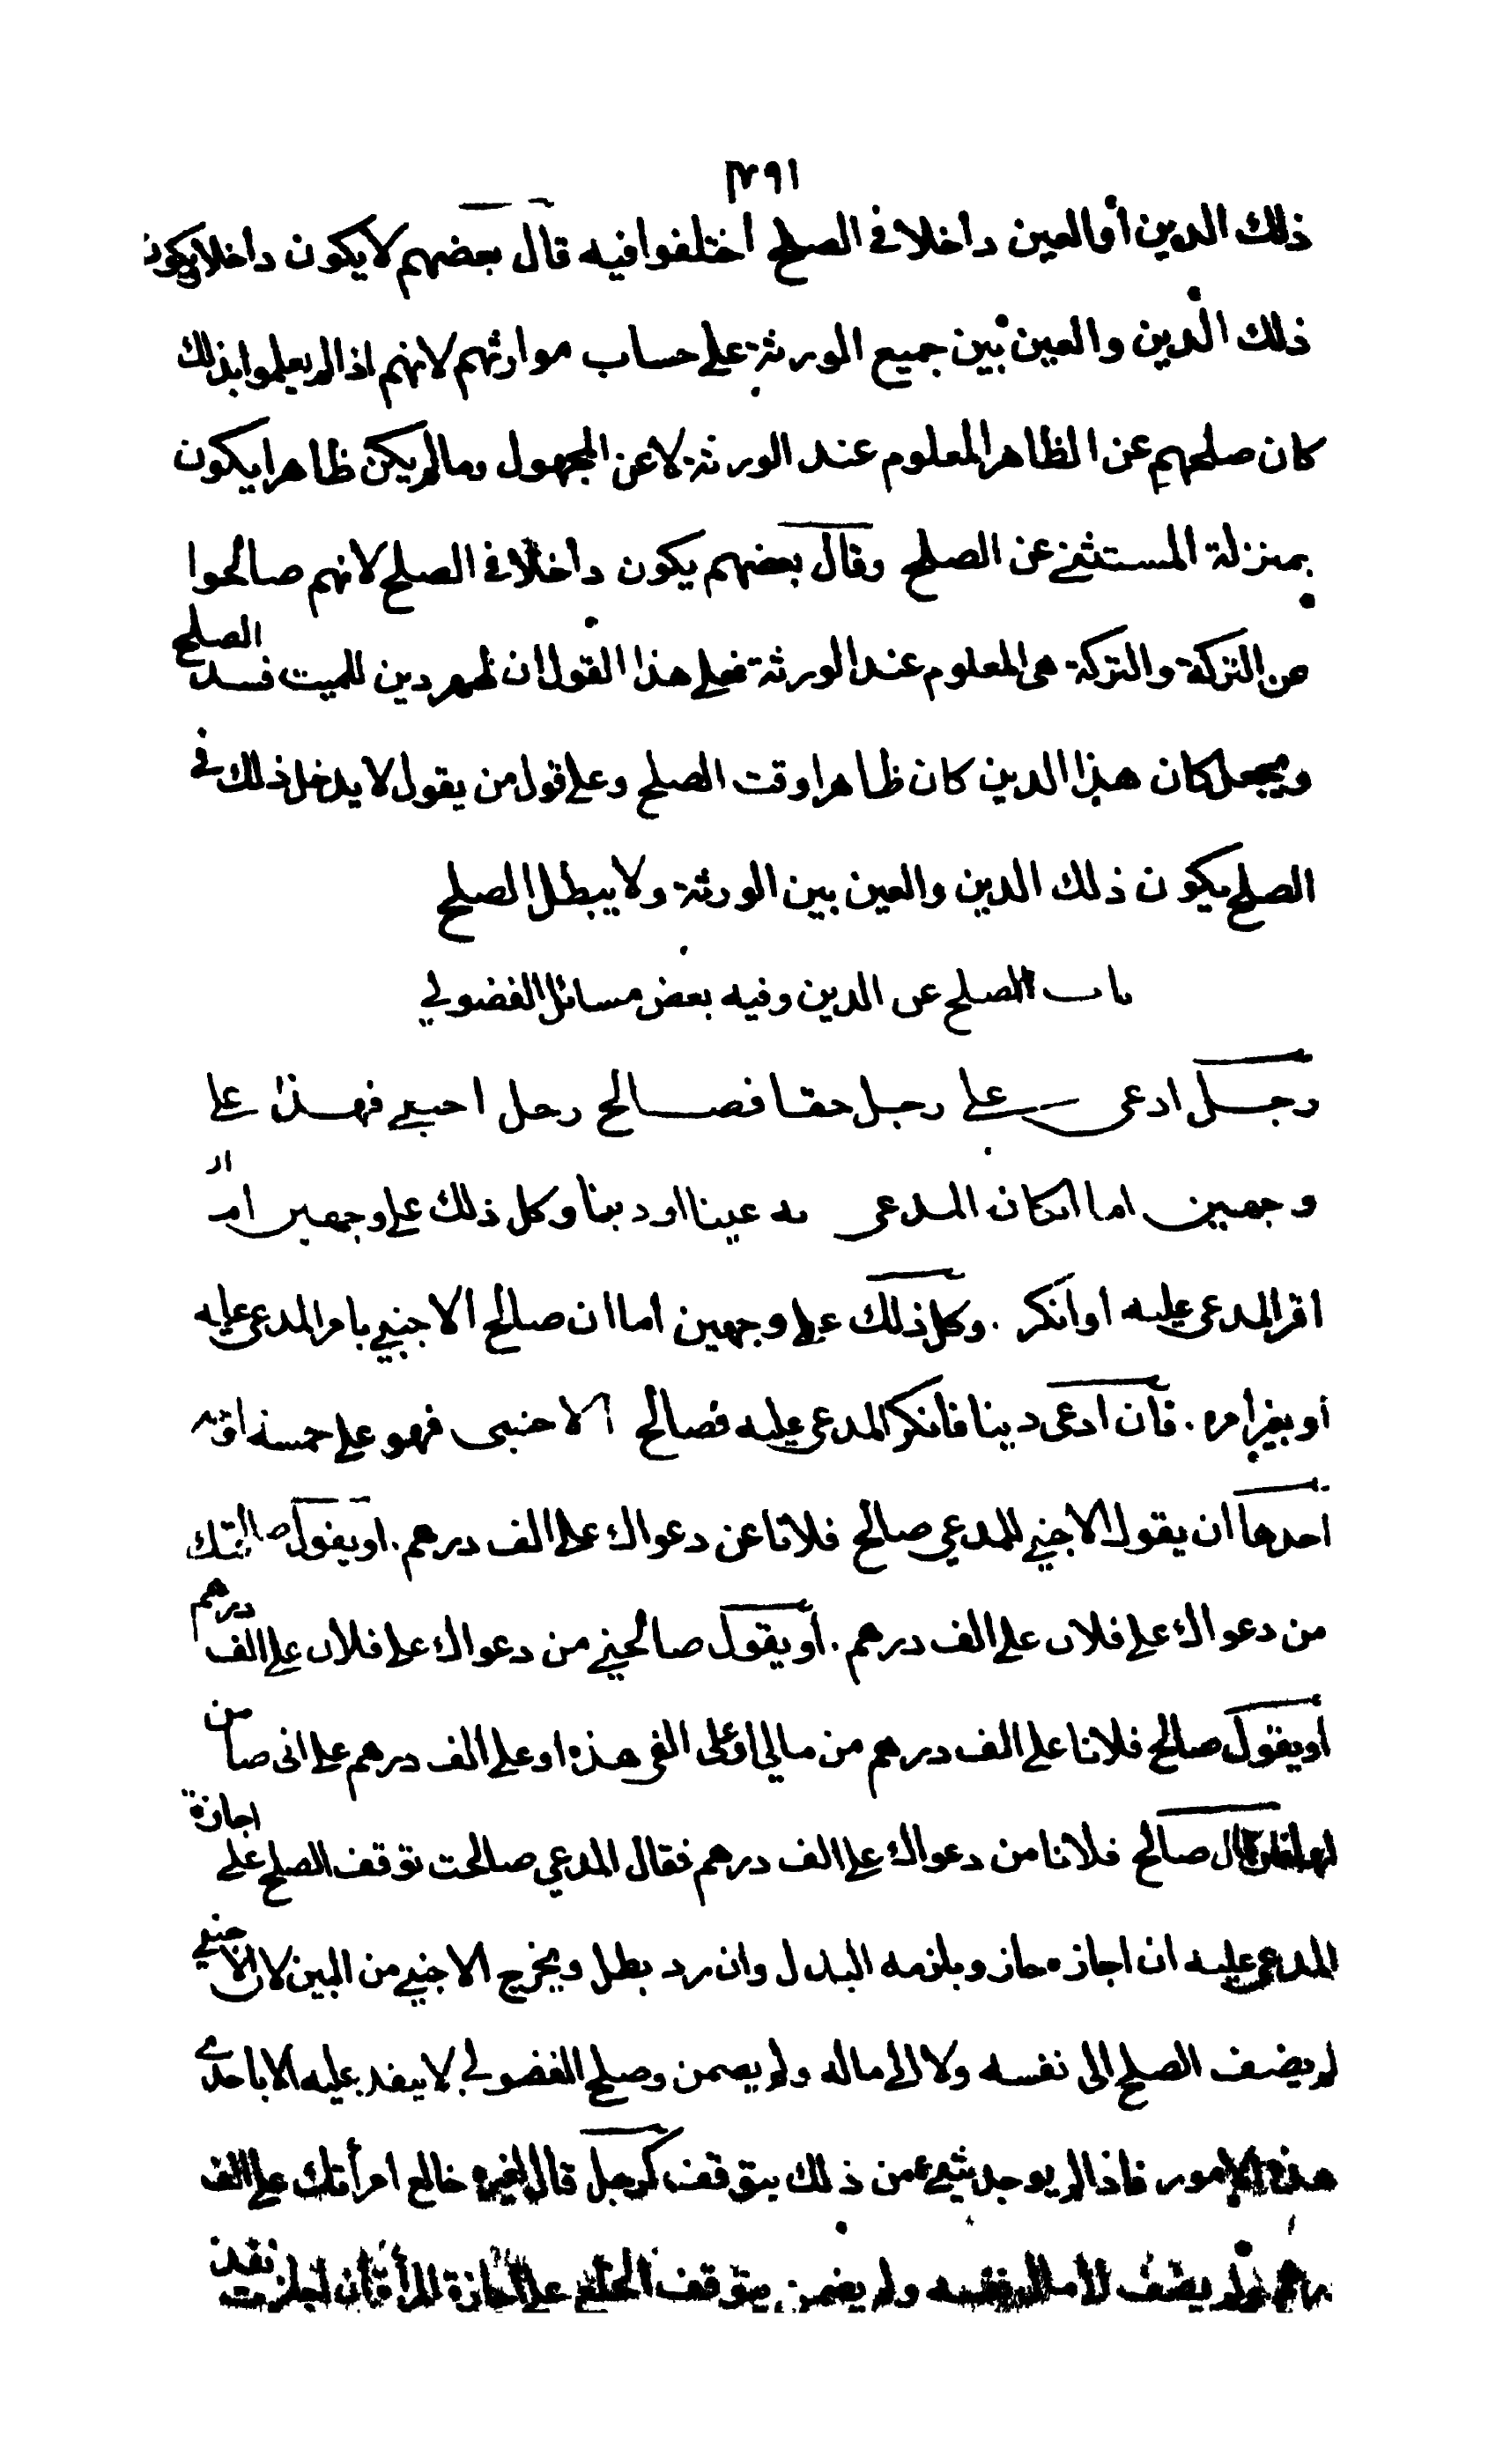 ذلك الدين أو العين داخلا في الصلح اختلفوا فيه قال بعضهم لا يكون داخلا ويكون
ذلك الدين والعين بين جميع الورثة على حساب مواريثهم لانهم اذا لم يعلموا بذلك
كان صلحهم عن الظاهر المعلوم عند الورثة لا عن المجهول وما لم يكن ظاهرا يكون
بمنزلة المستثنى عن الصلح وقال بعضهم يكون داخلا في الصلح لانهم صالحوا
عن التركة والتركة هي المعلوم عند الورثة فعلى هذا القول ان ظهر دين للميت فسد الصلح
ويجعل كان هذا الدين كان ظاهرا وقت الصلح وعلى قول من يقول لا يدخل ذلك في
الصلح يكون ذلك الدين والعين بين الورثة ولا يبطل الصلح
باب الصلح عن الدين وفيه بعض مسائل الفضولي
رجل ادعى على رجل حقا فصالح رجل اجنبي فهذا على
وجهين اما ان كان المدعى به عينا او دينا وكل ذلك على وجهين اما ان
اقر المدعى عليه او انكر . وكل ذلك على وجهين اما ان صالح الاجنبي بامر المدعى عليه
أو بغير امره . فان ادعى دينا فانكر المدعى عليه فصالح الاجنبي فهو على خمسة اوجه
احدها ان يقول الاجنبي للمدعي صالح فلانا عن دعواك على الف درهم . او يقول صالحتك
من دعواك على فلان على الف درهم . أو يقول صالحني من دعواك على فلان على الف درهم
او يقول صالح فلانا على الف درهم من مالي او على الفي هذه او على الف درهم على اني ضامن
لها فان قال صالح فلانا من دعواك على الف درهم فقال المدعي صالحت توقف الصلح على اجازة
المدعى عليه ان اجازه جاز ويلزمه البدل وان رد بطل ويخرج الاجنبي من البين لان الاجنبي
لم يضف الصلح الى نفسه ولا الى ماله ولم يضمن وصلح الفضولي لا ينفذ عليه الا باحدى
هذه الامور فاذا لم يوجد شيء من ذلك يتوقف كرجل قال لغيره خالع امرأتك على الف
درهم ولم يضف لا مال نفسه ولم يضمن يتوقف الخلع على اجازة المرأة ان اجازت نفذ